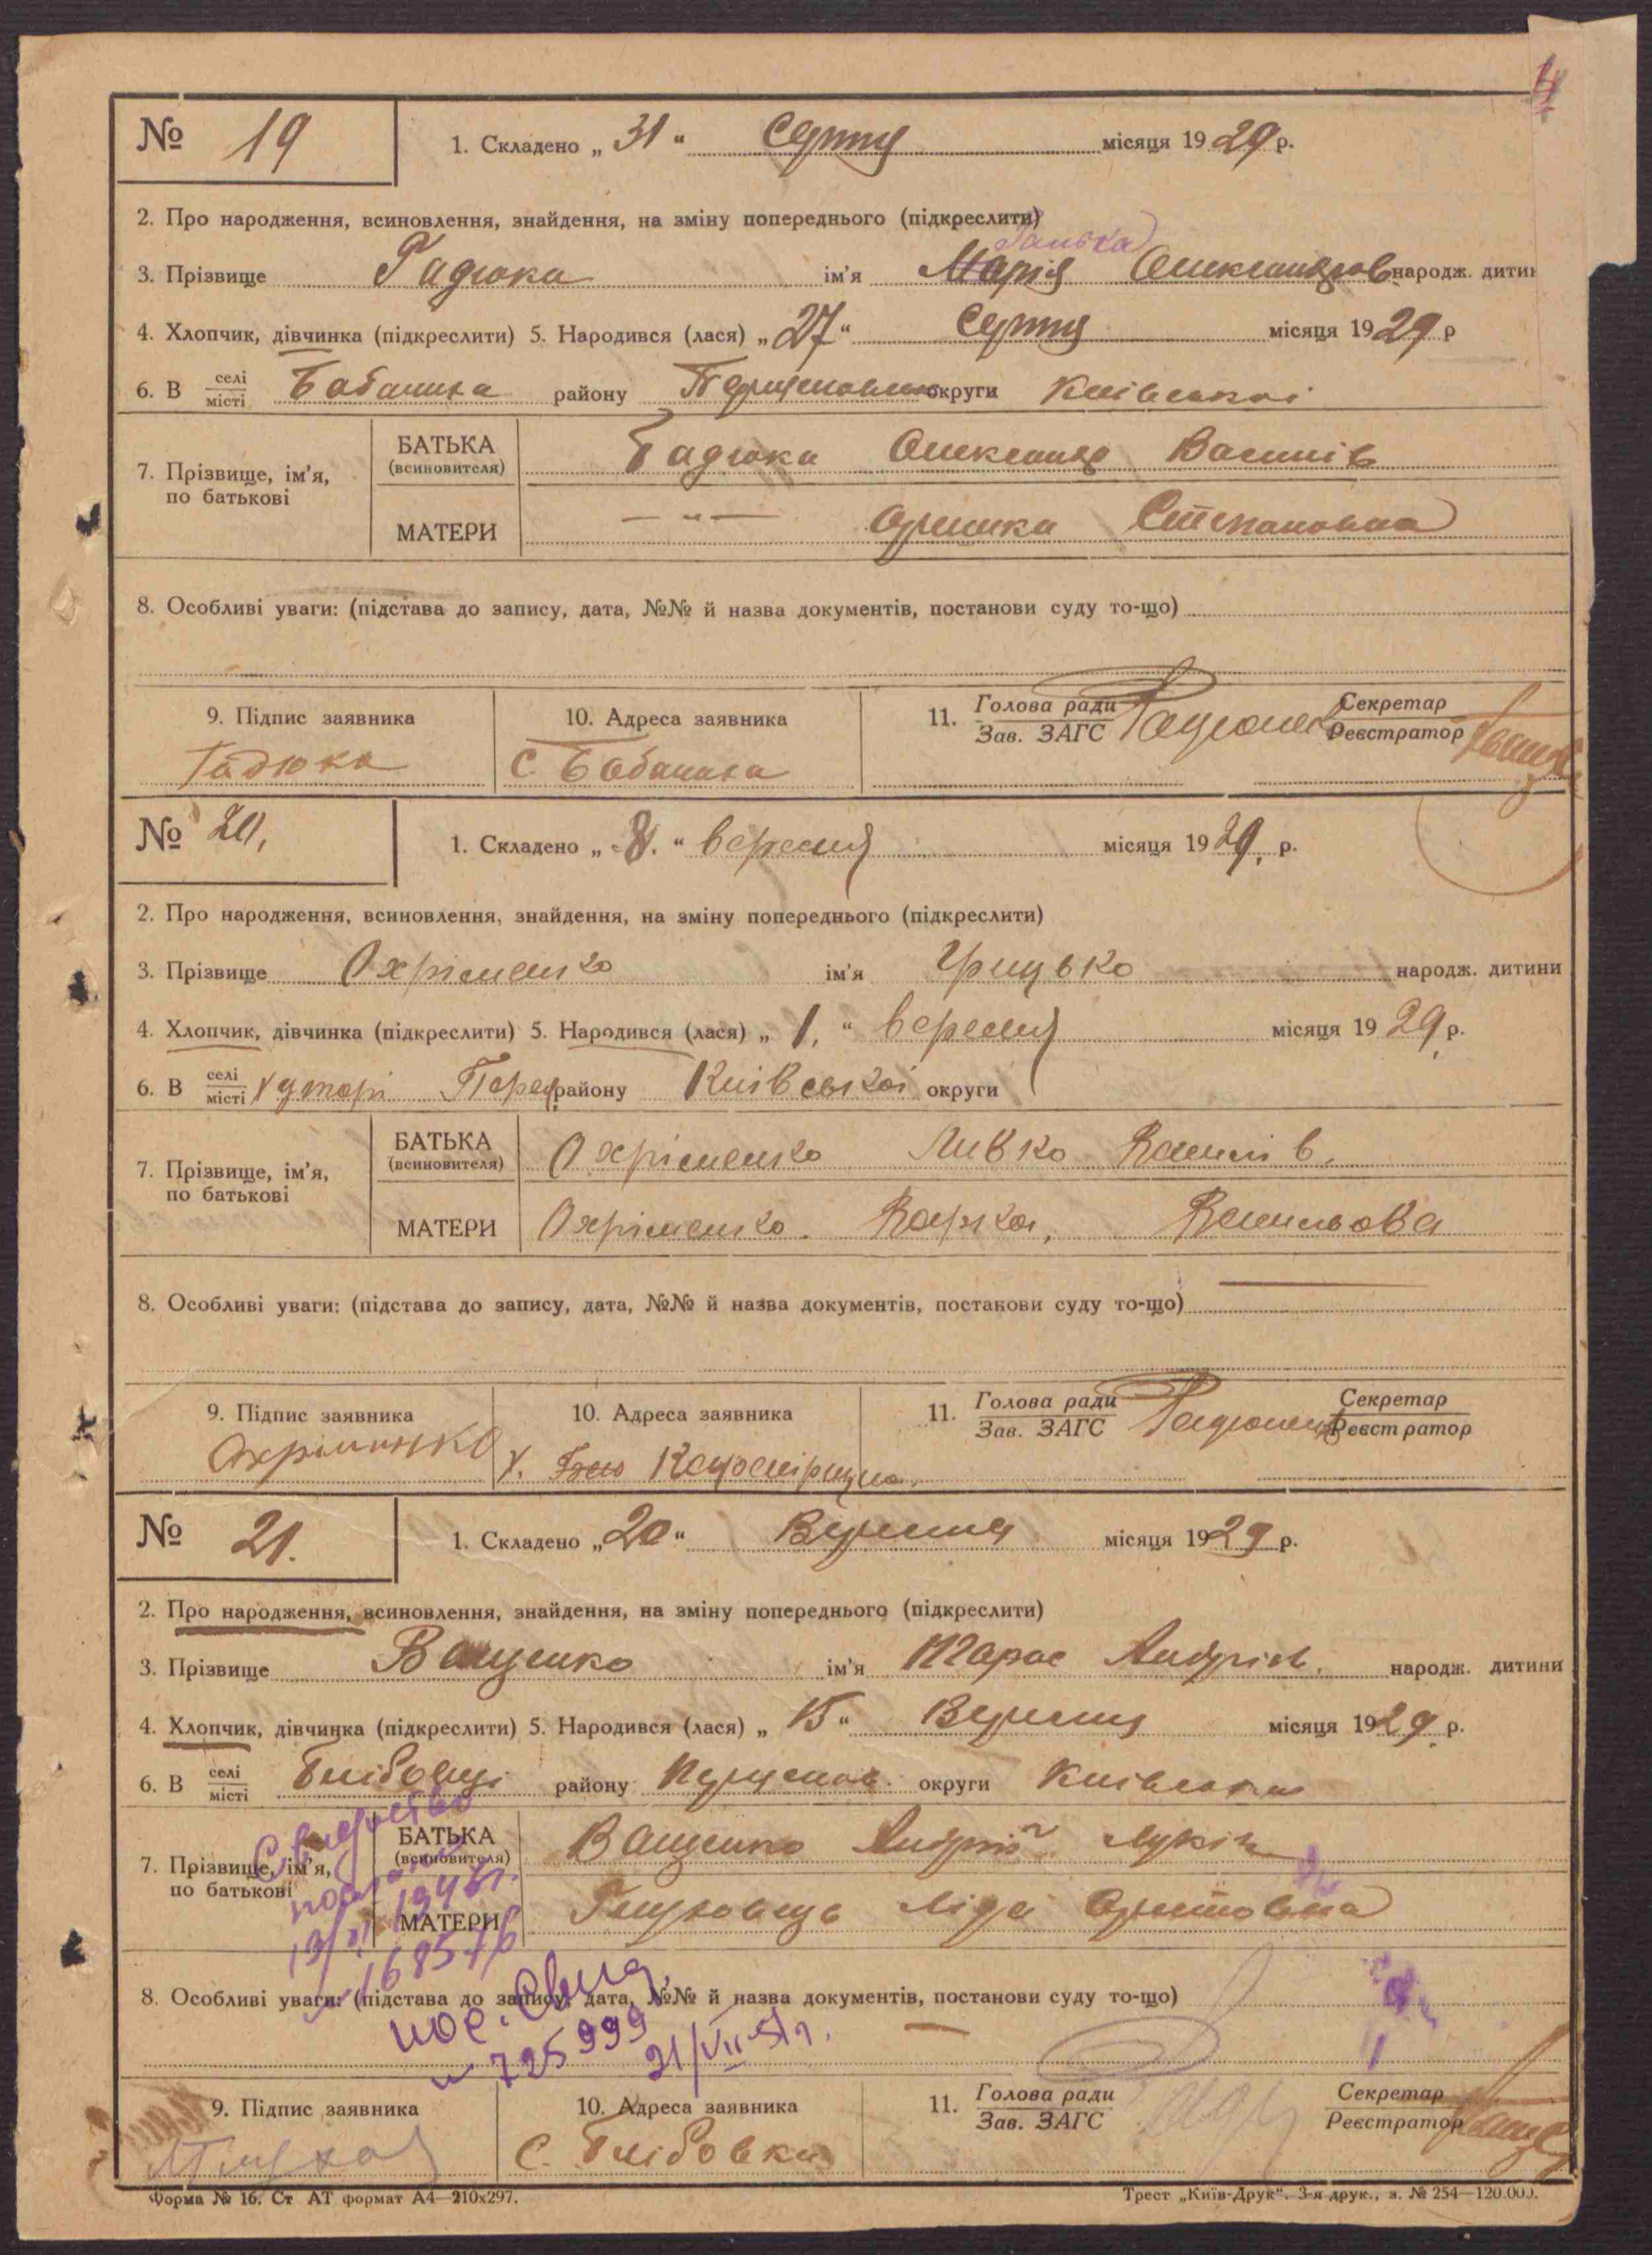 4
№ 19
1. Складено „ 31 “ Серпня місяця 1929 р.
2. Про народження, всиновлення, знайдення, на зміну попереднього (підкреслити)
Ганька
3. Прізвище Гадюка ім'я Марія Олександров народж. дитин
4. Хлопчик, дівчинка (підкреслити) 5. Народився (лася) „ 27 “ Серпня місяця 1929 р
6. В селі місті Бабанина району округи Київської
7. Прізвище, ім'я, по батькові
БАТЬКА (всиновителя) Гадюка Олександр Василів
МАТЕРИ — " — Оришка Степановна
8. Особливі уваги: (підстава до запису, дата, №№ й назва документів, постанови суду то-що)
9. Підпис заявника 10. Адреса заявника 11. Голова ради Зав. ЗАГС Секретар Реєстратор
Гадюка С. Бабанина
№ 20.
1. Складено „ 8. “ вересня місяця 1929. р.
2. Про народження, всиновлення, знайдення, на зміну попереднього (підкреслити)
3. Прізвище Охріменко ім'я Грицько народж. дитини
4. Хлопчик, дівчинка (підкреслити) 5. Народився (лася) „ 1. “ вересня місяця 1929 р.
6. В селі місті хуторі району Київської округи
7. Прізвище, ім'я, по батькові
БАТЬКА (всиновителя) Охріменко Левко Василів.
МАТЕРИ Охріменко. Варка, Васильова
8. Особливі уваги: (підстава до запису, дата, №№ й назва документів, постанови суду то-що)
9. Підпис заявника 10. Адреса заявника 11. Голова ради Зав. ЗАГС Секретар Реєстратор
х.
№ 21.
1. Складено „ 20 “ Вересня місяця 1929 р.
2. Про народження, всиновлення, знайдення, на зміну попереднього (підкреслити)
3. Прізвище Ващенко ім'я Тарас Андріїв. народж. дитини
4. Хлопчик, дівчинка (підкреслити) 5. Народився (лася) „ 15 “ Вересня місяця 1929 р.
6. В селі місті Глібовці району округи Київської
7. Прізвище, ім'я, по батькові
БАТЬКА (всиновителя) Ващенко Андрій Луків
МАТЕРИ Ліда
8. Особливі уваги: (підстава до запису, дата, №№ й назва документів, постанови суду то-що)
725999
21/VII-51 г.
9. Підпис заявника 10. Адреса заявника 11. Голова ради Зав. ЗАГС Секретар Реєстратор
С. Глібовка
Форма № 16. Ст АТ формат А4—210х297.
Трест „Київ-Друк“. 3-я друк., з. № 254—120.000.